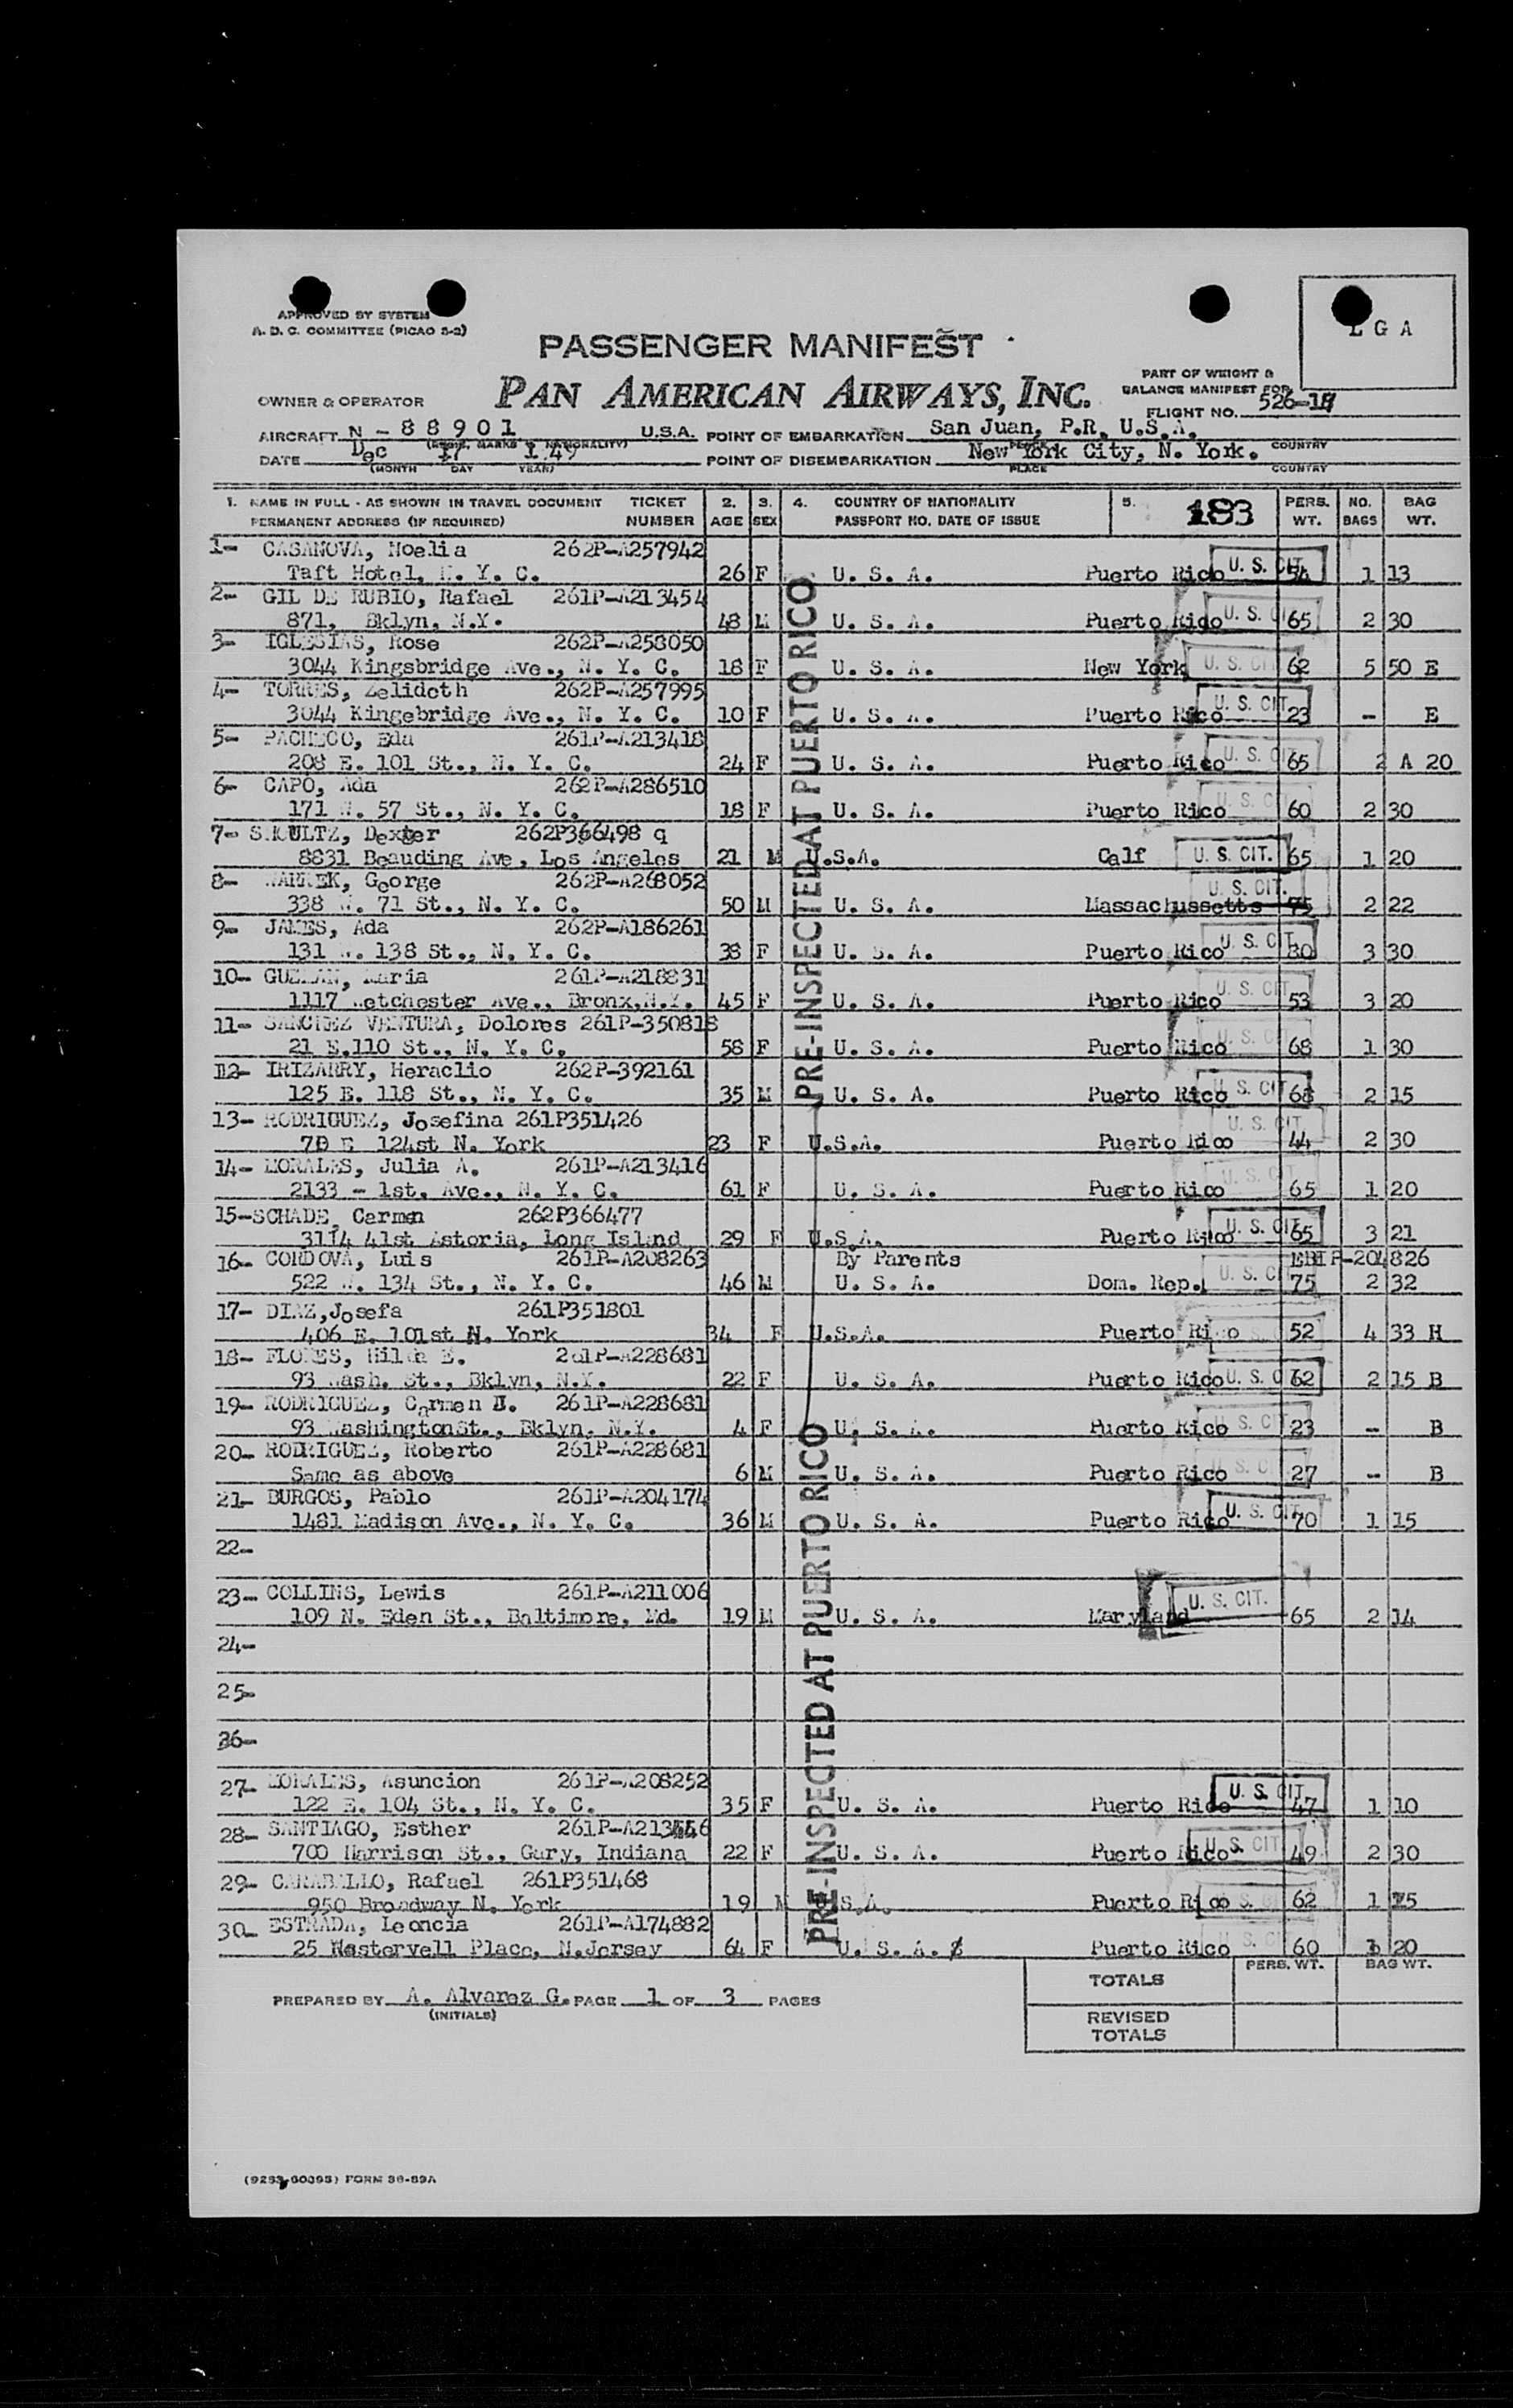 APPROVED BY SYSTEM
A. D. C. COMMITTEE (PICAO S-2)
L G A
PASSENGER MANIFEST
PAN AMERICAN AIRWAYS, INC.
PART OF WEIGHT &
BALANCE MANIFEST FOR
OWNER & OPERATOR
FLIGHT NO. 526-
AIRCRAFT N - 8 8 9 0 1 U.S.A. POINT OF EMBARKATION San Juan, P.R. U.S.A.
DATE Dec 17 1 49 POINT OF DISEMBARKATION New York City, N. York.
(MONTH DAY YEAR) PLACE COUNTRY
1. NAME IN FULL - AS SHOWN IN TRAVEL DOCUMENT TICKET 2. 3. 4. COUNTRY OF NATIONALITY 5. 183 PERS. NO. BAG
PERMANENT ADDRESS (IF REQUIRED) NUMBER AGE SEX PASSPORT NO. DATE OF ISSUE WT. BAGS WT.
1- CASANOVA, Noelia 262P-A257942
Taft Hotel, N. Y. C. 26 F U. S. A. Puerto Rico U. S. CIT. 54 1 13
2- GIL DE RUBIO, Rafael 261P-A213454
871, Bklyn, N.Y. 48 M U. S. A. Puerto Rico U. S. 65 2 30
3- IGLESIAS, Rose 262P-A258050
3044 Kingsbridge Ave., N. Y. C. 18 F U. S. A. New York U. S. CI 62 5 50 E
4- TORRES, Zelideth 262P-A257995
3044 Kingebridge Ave., N. Y. C. 10 F U. S. A. Puerto Rico U. S. CIT. 23 - E
5- PACHECO, Eda 261P-A213418
208 E. 101 St., N. Y. C. 24 F U. S. A. Puerto Rico U. S. C 65 2 A 20
6- CAPO, Ada 262P-A286510
171 W. 57 St., N. Y. C. 18 F U. S. A. Puerto Rico U. S. C 60 2 30
7- SHOULTZ, Dexter 262P366498 q
8831 Beauding Ave, Los Angeles 21 M U.S.A. Calf U. S. CIT. 65 1 20
8- George 262P-A268052
338 W. 71 St., N. Y. C. 50 M U. S. A. Massachussetts U. S. CIT. 75 2 22
9- JAMES, Ada 262P-A186261
131 W. 138 St., N. Y. C. 38 F U. S. A. Puerto Rico U. S. CIT. 80 3 30
10- GUZMAN, Maria 261P-A218831
1117 Wetchester Ave., Bronx,N.Y. 45 F U. S. A. Puerto Rico U. S. CIT. 53 3 20
11- SANCHEZ VENTURA, Dolores 261P-350818
21 E.110 St., N. Y. C. 58 F U. S. A. Puerto Rico U. S. C 68 1 30
12- IRIZARRY, Heraclio 262P-392161
125 E. 118 St., N. Y. C. 35 M U. S. A. Puerto Rico U. S. CIT 68 2 15
13- RODRIGUEZ, Josefina 261P351426
E 124st N. York 23 F U.S.A. Puerto Rico U. S. CIT. 44 2 30
14- MORALES, Julia A. 261P-A213416
2133 - 1st. Ave., N. Y. C. 61 F U. S. A. Puerto Rico U. S. CIT 65 1 20
15-SCHADE, Carmen 262P366477
3114 41st Astoria, Long Island 29 F U.S.A. Puerto Rico U. S. CIT. 65 3 21
16- CORDOVA, Luis 261P-A208263 By Parents -204826
522 W. 134 St., N. Y. C. 46 M U. S. A. Dom. Rep. U. S. CI 75 2 32
17- DIAZ,Josefa 261P351801
406 E. 101st N. York 34 F U.S.A. Puerto Rico 52 4 33 H
18- FLORES, Hilda E. 261P-A228681
93 Wash. St., Bklyn, N.Y. 22 F U. S. A. Puerto Rico U. S. C 62 2 15 B
19- RODRIGUEZ, Carmen 261P-A228681
93 WashingtonSt., Bklyn, N.Y. 4 F U. S. A. Puerto Rico U. S. CI 23 - B
20- RODRIGUEZ, Roberto 261P-A228681
Same as above 6 M U. S. A. Puerto Rico U. S. C 27 - B
21- BURGOS, Pablo 261P-A204174
1481 Madison Ave., N. Y. C. 36 M U. S. A. Puerto Rico U. S. CIT. 70 1 15
22-
23- COLLINS, Lewis 261P-A211006
109 N. Eden St., Baltimore, Md. 19 M U. S. A. Maryland U. S. CIT. 65 2 14
24-
25-
36-
27- MORALES, Asuncion 261P-A208252
122 E. 104 St., N. Y. C. 35 F U. S. A. Puerto Rico U. S. CIT. 47 1 10
28- SANTIAGO, Esther
700 Harrison St., Gary, Indiana 22 F U. S. A. Puerto Rico U. S. CIT 49 2 30
29- CARABALLO, Rafael 261P351468
950 Broadway N. York 19 M U.S.A. Puerto Rico 62 1 15
30- ESTRADA, Leoncia 261P-A174882
25 Westervell Place, N.Jersey 64 F U. S. A. Puerto Rico U. S. CI 60 1 20
PRE-INSPECTED AT PUERTO RICO
PRE-INSPECTED AT PUERTO RICO
PERS. WT. BAG WT.
TOTALS
PREPARED BY A. Alvarez G. PAGE 1 OF 3 PAGES
(INITIALS)
REVISED
TOTALS
FORM 38-89A